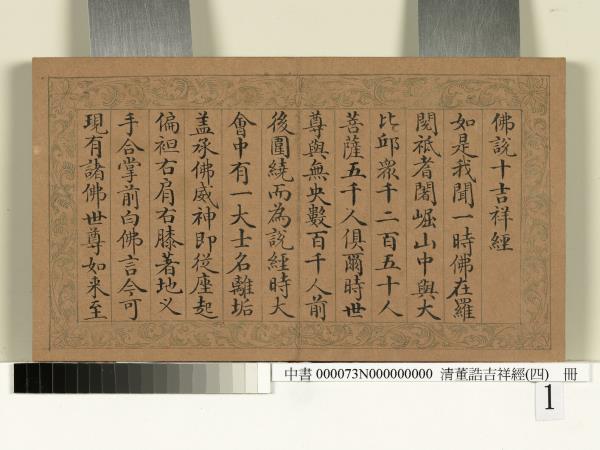 佛說十吉祥經
如是我聞一時佛在羅
閱祇耆闍崛山中與大
比邱眾千二百五十人
菩薩五千人俱爾時世
尊與無央數百千人前
後圍繞而為說經時大
會中有一大士名離垢
盖承佛威神即從座起
偏袒右肩右膝著地乂
手合掌前白佛言今可
現有諸佛世尊如来至
中書 000073N000000000 清董誥吉祥經(四) 冊
1